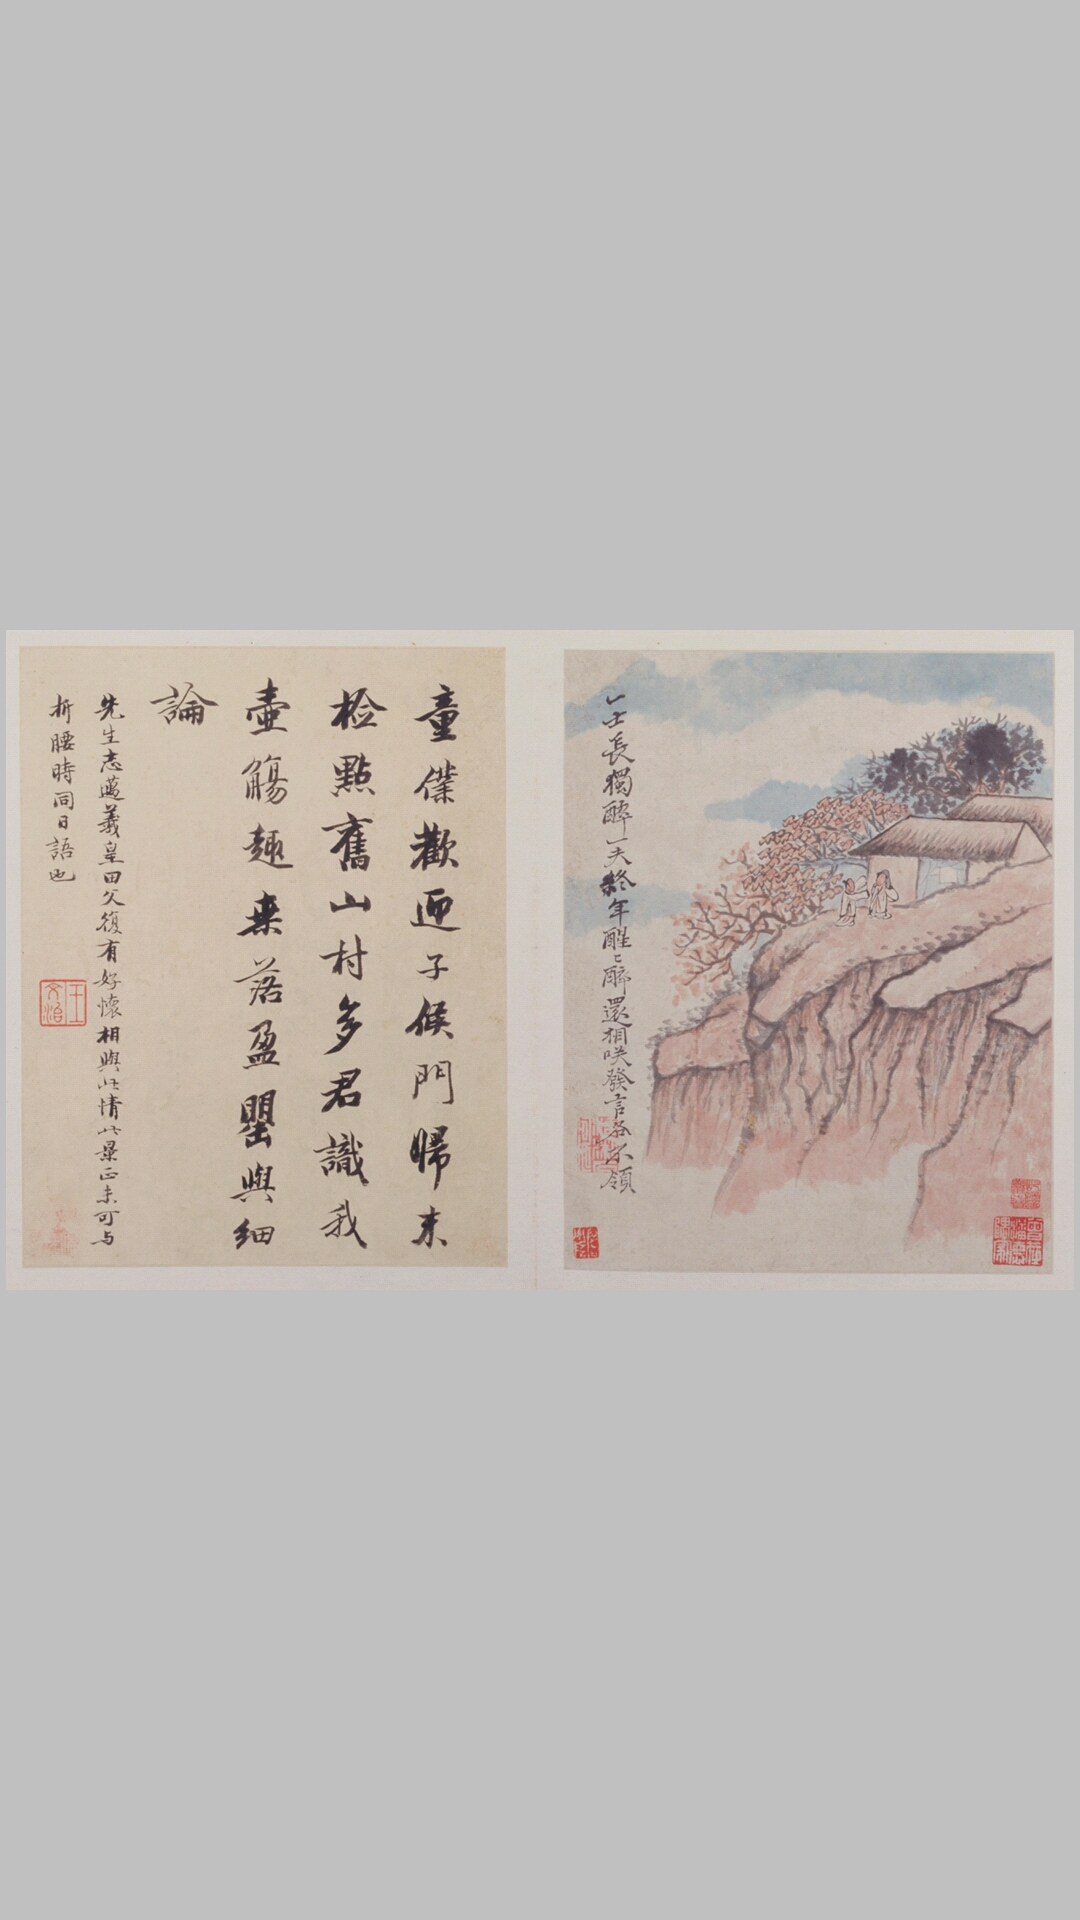 一士長獨醉一夫終年醒醒醉還相咲發言各不領
童僕歡迎子候門歸来
檢點舊山村多君識我
壺觴趣桒落盈罌與細
論
先生志邁羲皇田父復有好懷相與此情此景正未可与
折腰時同日語也
王文治